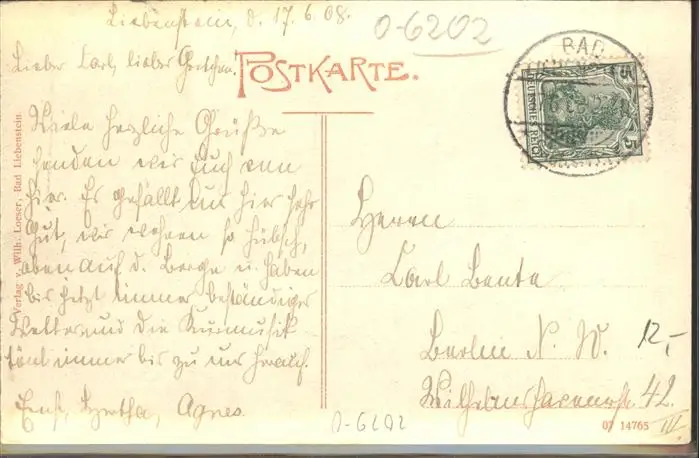 Liebenstein, d. 17.6.08.
0-6202
Lieber Carl, liebes Gretchen.
POSTKARTE.
BAD
5 5
DEUTSCHES REICH
Viele herzliche Grüße
senden wir Euch von
hier. Es gefällt uns hier sehr
gut, wir wohnen so hübsch,
oben auf d. Berge u. haben
bis jetzt immer beständiges
Wetter und die Kurmusik
tönt immer bis zu uns herauf.
Ernst, Hertha, Agnes
Herrn
Carl
Berlin N. W.
42.
III
12,-
0-6202
07 14765
Verlag v. Wilh. Loeser, Bad Liebenstein.